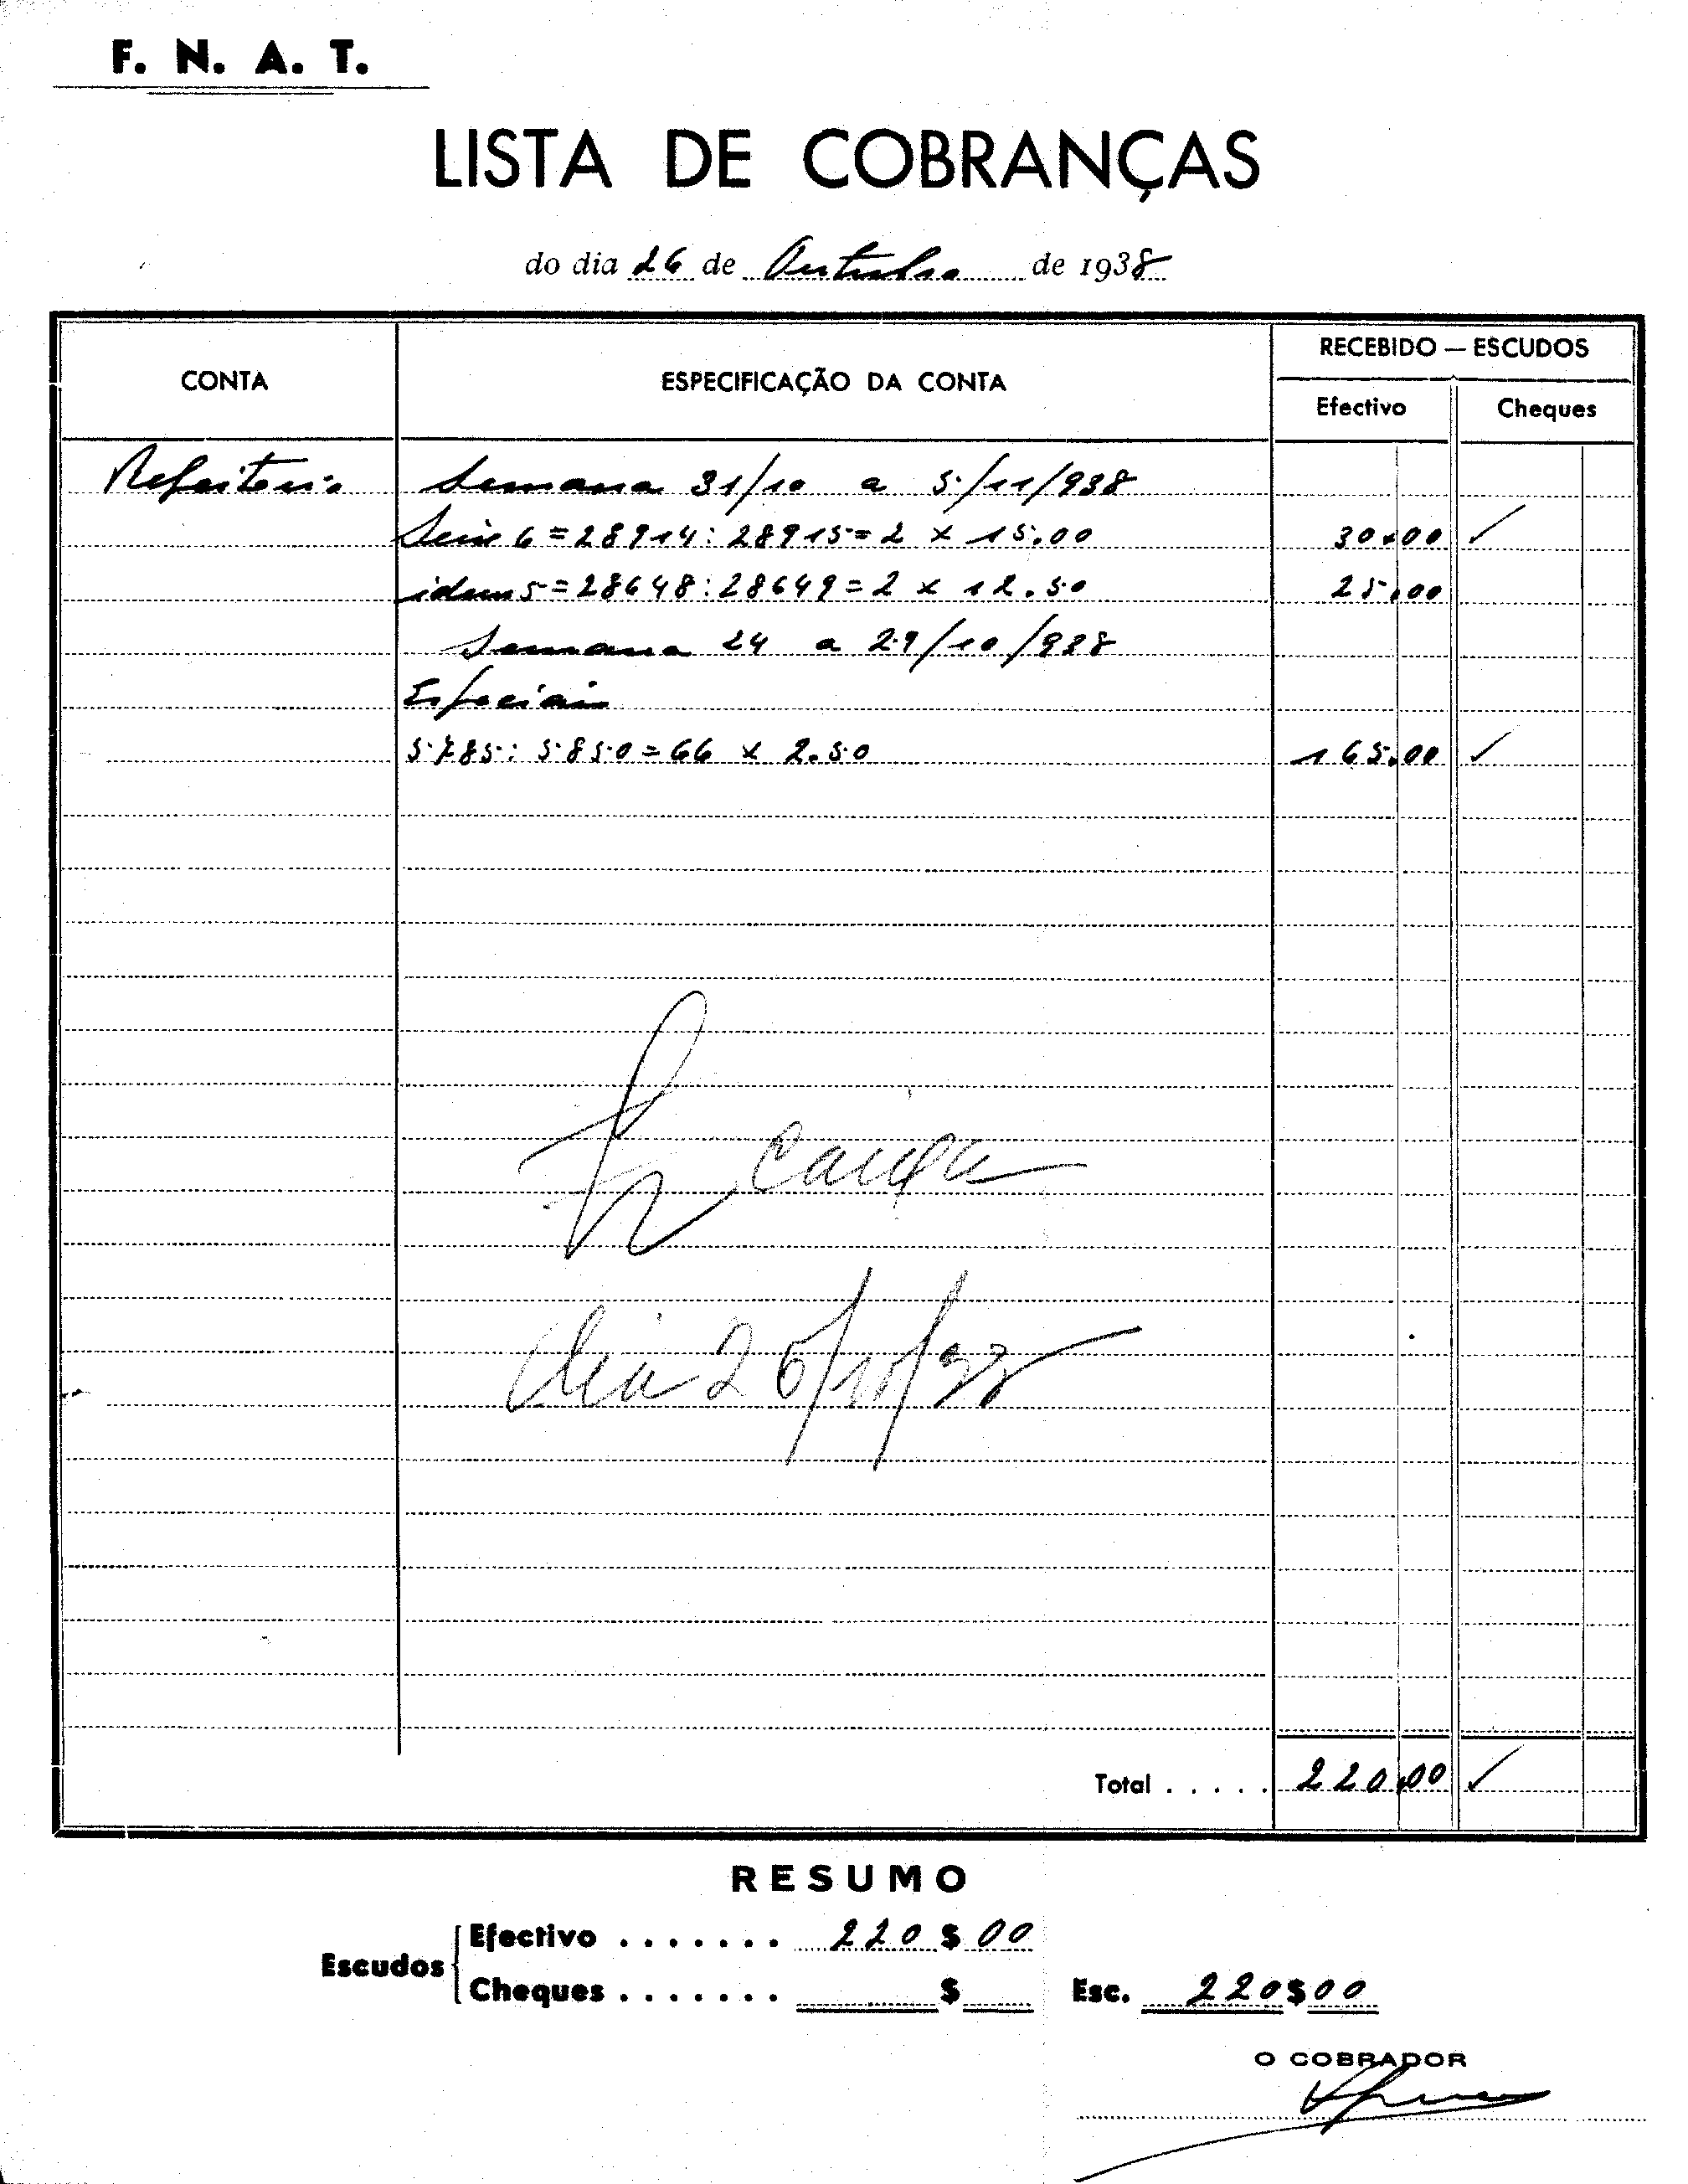 F. N. A. T.
LISTA DE COBRANÇAS
do dia 26 de Outubro de 1938
CONTA
ESPECIFICAÇÃO DA CONTA
RECEBIDO — ESCUDOS
Efectivo
Cheques
Refeitorio Semana 31/10 a 5/11/938
Serie 6 = 28914 : 28915 = 2 x 15.00 30.00 ✓
idem 5 = 28648 : 28649 = 2 x 12.50 25.00
Semana 24 a 29/10/938
Especiais
5.785 : 5.850 = 66 x 2.50 165.00 ✓
caixa
dia 26/10/38
Total . . . . . 220.00 ✓
RESUMO
Escudos
Efectivo . . . . . . . 220 $ 00
Cheques . . . . . . . $
Esc. 220$00
O COBRADOR